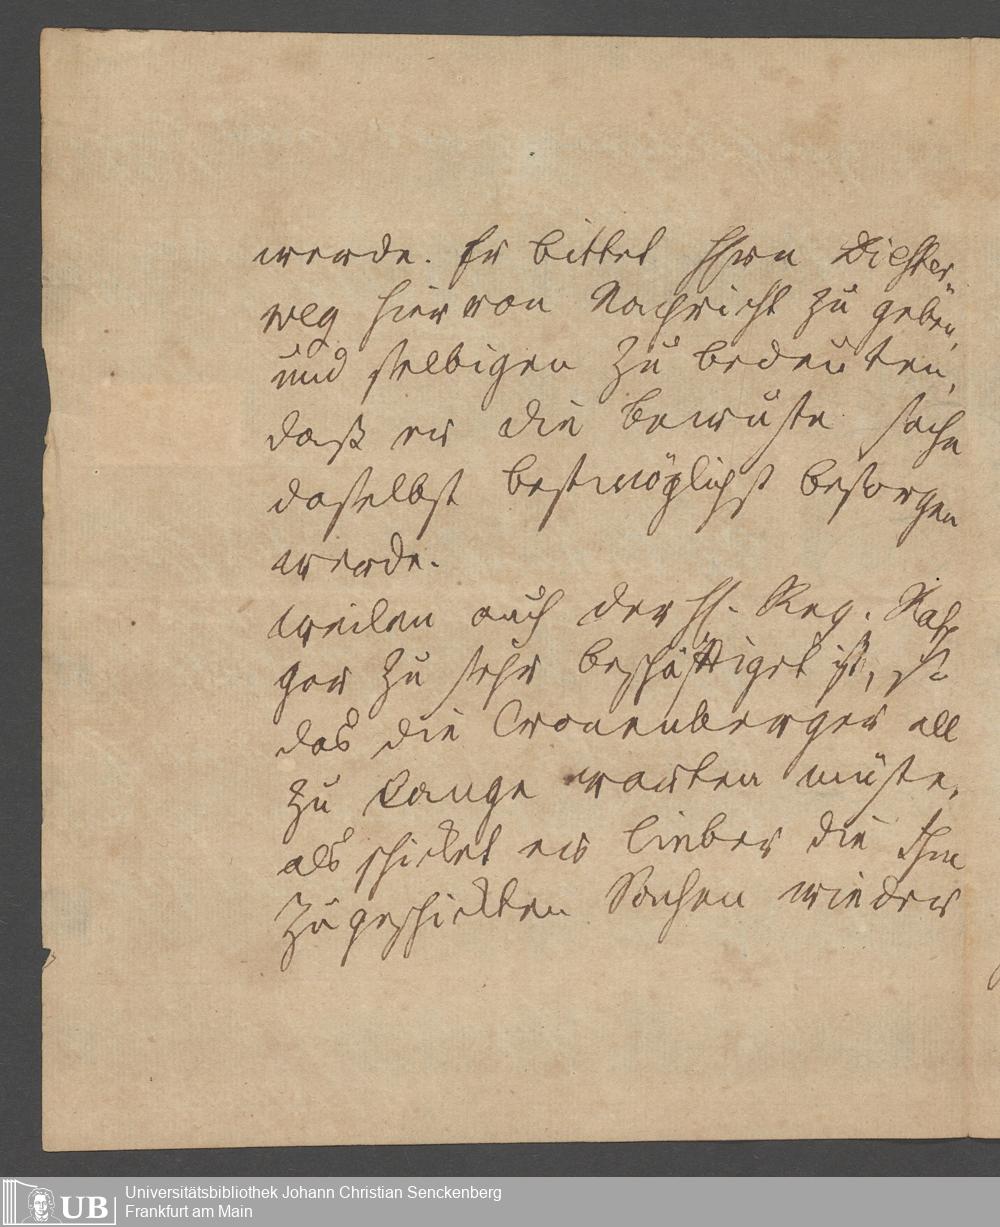 werde. Er bittet Hhrn Diester-
weg hiervon Nachricht zu geben,
und selbigen zu bedeuten,
daß er die bewuste sache
daselbst bestmöglichst besorgen
werde.
weilen auch der H. Reg. Rath
gar zu sehr beschäftiget ist, u.
das die Cronenberger all
zu lange warten müste,
als schicket er lieber die Ihm
zugeschickten Sachen wieder
UB
Universitätsbibliothek Johann Christian Senckenberg
Frankfurt am Main